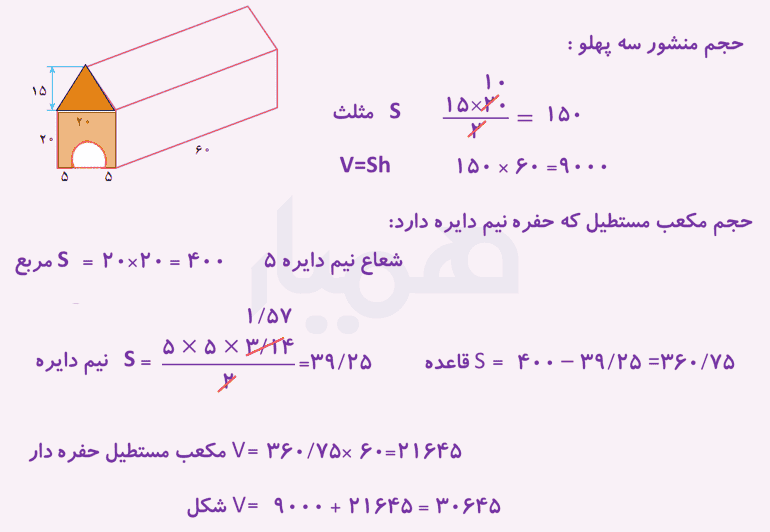 حجم منشور سه پهلو :
۱۵
۲۰
۲۰
۵ ۵
۶۰
۱۰
S مثلث ۱۵×۲۰ / ۲ = ۱۵۰
V=Sh ۱۵۰ × ۶۰ =۹۰۰۰
حجم مکعب مستطیل که حفره نیم دایره دارد:
مربع S = ۲۰×۲۰ = ۴۰۰ شعاع نیم دایره ۵
۱/۵۷
نیم دایره S = ۵ × ۵ × ۳/۱۴ / ۲ =۳۹/۲۵ قاعده S = ۴۰۰ – ۳۹/۲۵ =۳۶۰/۷۵
مکعب مستطیل حفره دار V= ۳۶۰/۷۵× ۶۰=۲۱۶۴۵
شکل V= ۹۰۰۰ + ۲۱۶۴۵ = ۳۰۶۴۵
همیار